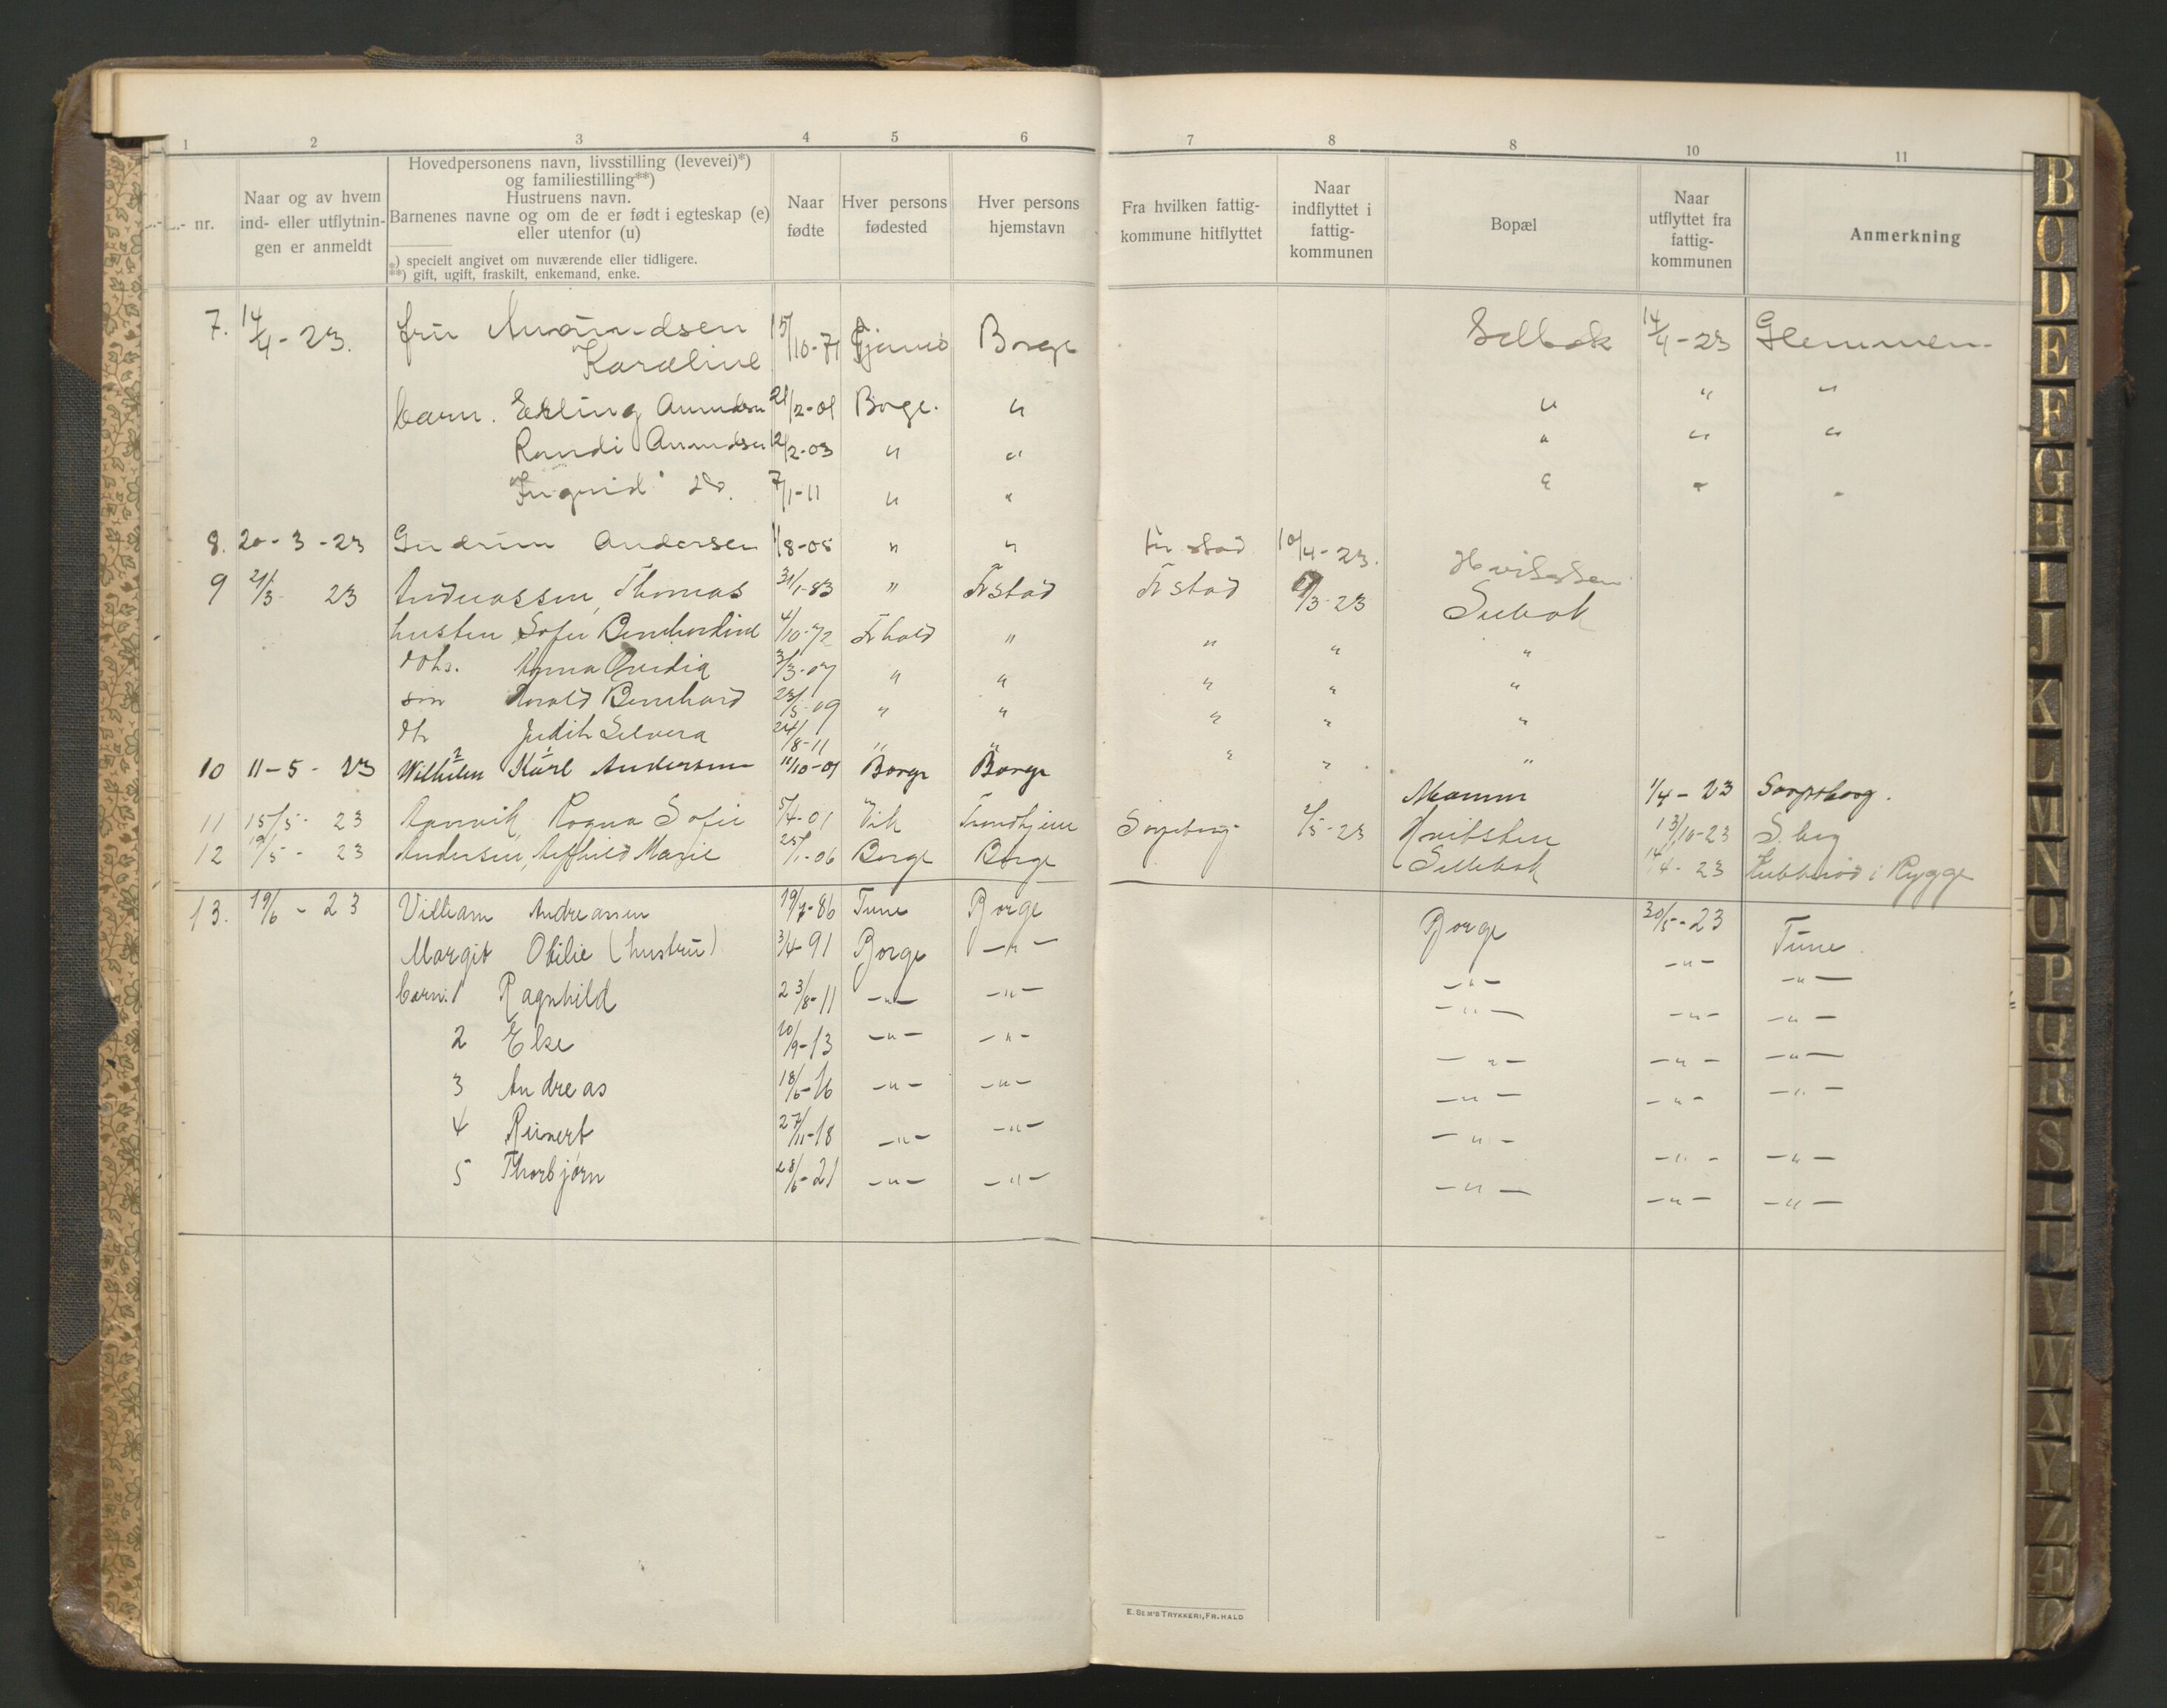 1 2 3 4 5 6 7 8 8 10 11
nr.
Naar og av hvem
ind- eller utflytnin-
gen er anmeldt
Hovedpersonens navn, livsstilling (levevei)*)
og familiestilling**)
Hustruens navn.
Barnenes navne og om de er født i egteskap (e)
eller utenfor (u)
*) specielt angivet om nuværende eller tidligere.
**) gift, ugift, fraskilt, enkemand, enke.
Naar
fødte
Hver persons
fødested
Hver persons
hjemstavn
Fra hvilken fattig-
kommune hitflyttet
Naar
indflyttet i
fattig-
kommunen
Bopæl
Naar
utflyttet fra
fattig-
kommunen
Anmerkning
7. 14/4 - 23. fru Amundsen Borge Selbak 14/4 - 23 Glemmen
Karoline
barn. Erling Amundsen 21/2-01 Borge. " " " "
Randi Amundsen 12/2-03 " " " " "
Ingrid do. 7/1-11 " " " " "
8. 20-3-23 Gudrun Andersen 1/8-05 " " Fr stad 10/4-23. Hvitsten
9 21/3- 23 Andreassen, Thomas 31/1-83 " Fr stad Fr stad /3-23 Selbak
hustru Sofie Bernhardine 4/10-72 Fr hald " " " "
dtr. Anna Ovidia 3/3-07 " " " " "
søn Harald Bernhard 23/5-09 " " " " "
dtr Judith Selvera 24/8-11 " " " " "
10 11-5-23 Wilhelm Karl Andersen 11/10-01 Borge Borge Moum 1/4-23 Sarpsborg.
11 15/5- 23 Aamvik Ragna Sofie 5/4-01 Vik Trondhjem Sarpsborg 2/5-23 Hvitsten 13/10-23 S.borg
12 19/5- 23 Andersen, Marie 25/1-06 Borge Borge Sellebak 14/4-23 i Rygge
13. 19/6 - 23 Villiam Andreassen 19/7-86 Tune Borge Borge 30/5-23 Tune.
Margit Otilie (hustru) 3/4-91 Borge -"- -"- -"- -"-
barn: 1 Ragnhild 23/8-11 -"- -"- -"- -"- -"-
2 Else 10/9-13 -"- -"- -"- -"- -"-
3 Andreas 18/6-16 -"- -"- -"- -"- -"-
4 Reinert 27/11-18 -"- -"- -"- -"- -"-
5 Thorbjørn 28/6-21 -"- -"- -"- -"- -"-
E. SEM'S TRYKKERI, FR.HALD
B
C
D
E
F
G
H
I
J
K
L
M
N
O
P
Q
R
S
T
U
V
W
X
Y
Z
Æ
Ø